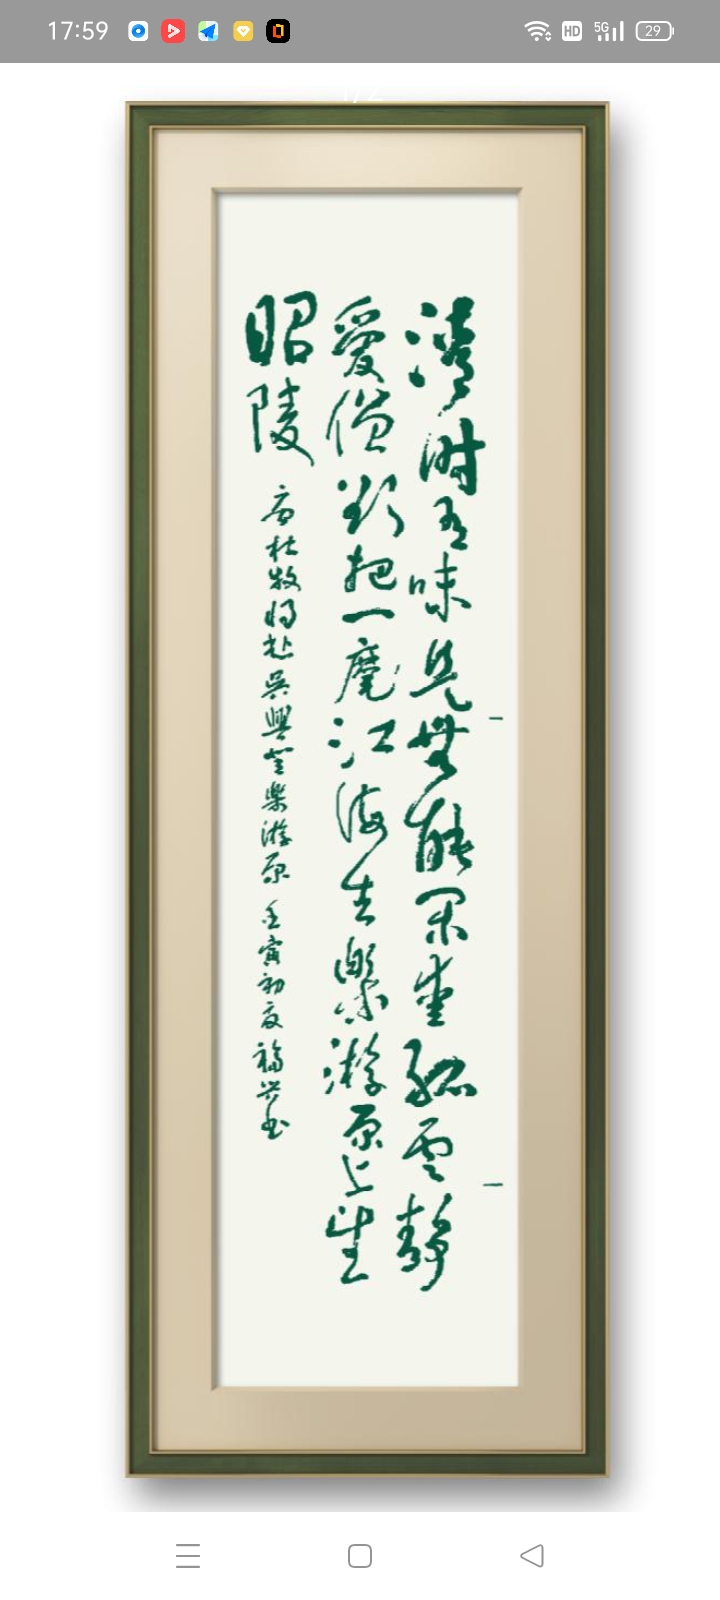 17:59 HD 5G 29
1/2
清时有味是無能闲愛孤雲静
愛僧欲把一麾江海去樂游原上望
昭陵 唐杜牧将赴吴興登樂游原 壬寅初夏 福兴书